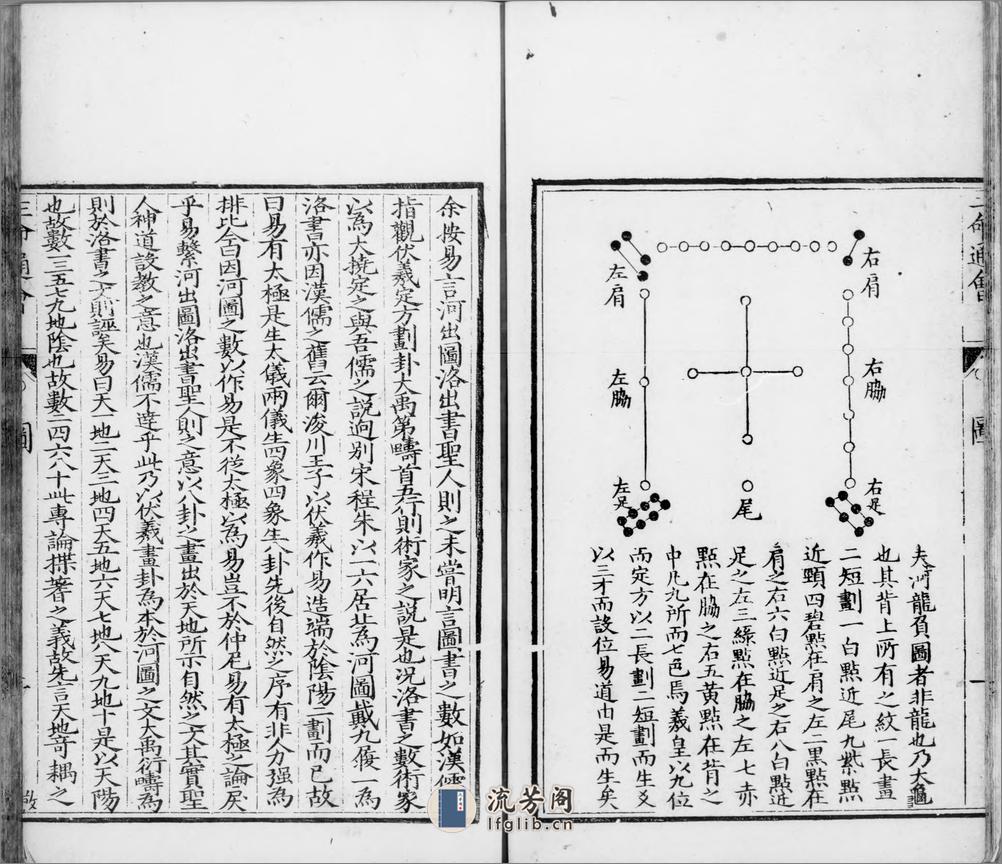 右肩
左肩
右脇
左脇
右足
左足
尾
夫河龍負圖者非龍也乃大龜
也其背上所有之紋一長畫
二短劃一白點近尾九紫點
近頸四碧點在肩之左二黑點在
肩之右六白點近足之右八白點近
足之左三綠點在脇之左七赤
點在脇之右五黃點在背之
中凡九所而七色焉羲皇以九位
而定方以二長劃二短劃而生爻
以三才而設位易道由是而生矣
圖
一
余按易言河出圖洛出書聖人則之未嘗明言圖書之數如漢儒
指觀伏羲定方劃卦大禹第疇首五行則術家之說是也況洛書之數術家
以為大撓定之與吾儒之說逈別宋程朱以一六居北為河圖戴九履一為
洛書亦因漢儒之舊云爾浚川王子以伏羲作易造端於陰陽二劃而已故
曰易有太極是生太儀兩儀生四象四象生八卦先後自然之序有非人分強為
排比含曰因河圖之數以作易是不從太極以為易豈不於仲尼易有太極之論戾
乎易繫河出圖洛出書聖人則之意以八卦之畫出於天地所示自然之文其實聖
人神道設教之意也漢儒不達乎此乃以伏羲畫卦為本於河圖之文大禹衍疇為
則於洛書之文則誣矣易曰天一地二天三地四天五地六天七地八天九地十是以天陽
也故數一三五七九地陰也故數二四六八十此專論揲蓍之義故先言天地奇耦之
三命通會
圖
流芳阁
lfglib.cn